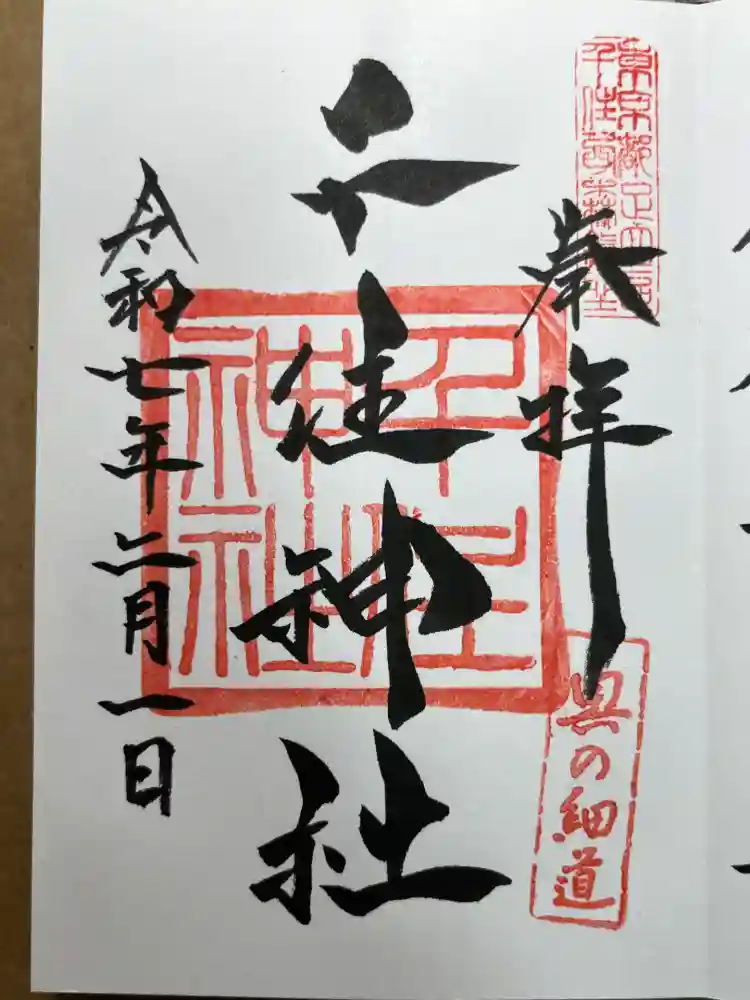 奉拝
千住神社
令和七年二月一日
千住神社
奥の細道